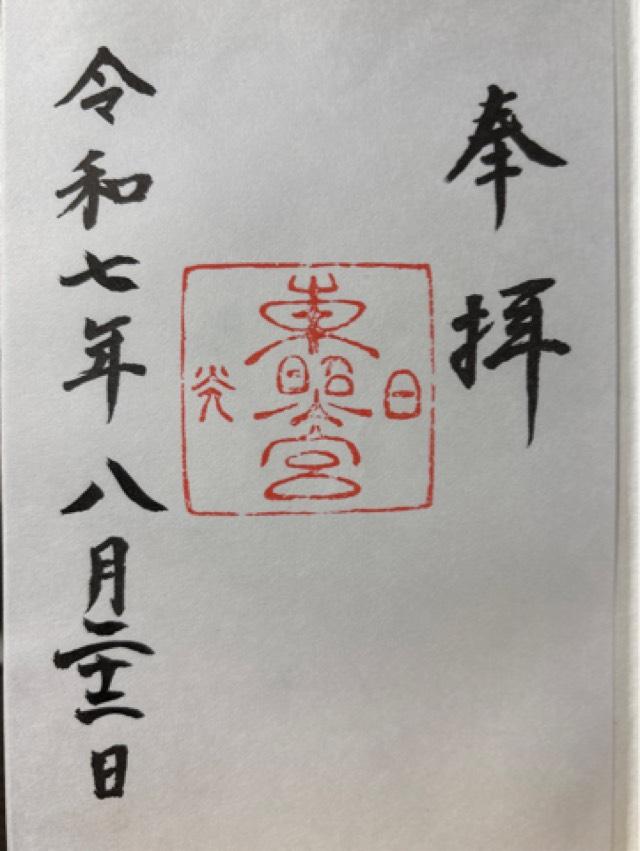 奉拝
日光
東照宮
令和七年八月二十二日